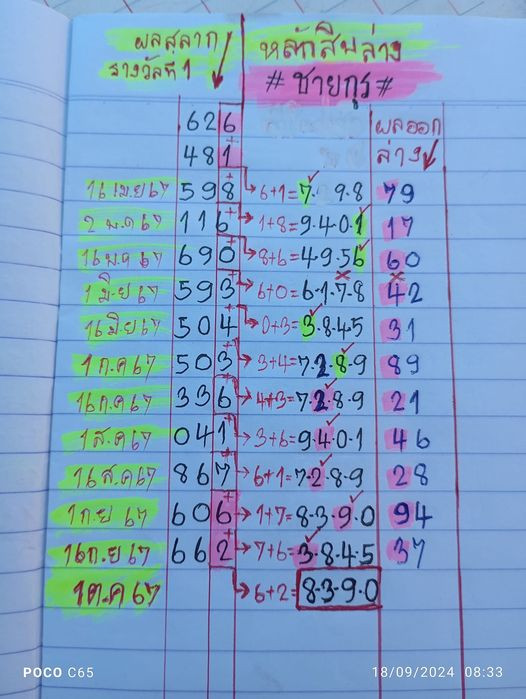 ผลสลาก หลักสิบล่าง
รางวัลที่ 1 #ชายกูร#
626 ผลออก
481 ล่าง
16 เม.ย 67 598 6+1=7. 9.8 79
2 พ.ค 67 116 1+8=9.4.0.1 17
16 พ.ค 67 690 8+6=4.9.5.6 60
1 มิ.ย 67 593 6+0=6.1.7.8 42
16 มิ.ย 67 504 0+3=3.8.4.5 31
1 ก.ค 67 503 3+4=7.2.8.9 89
16 ก.ค 67 336 4+3=7.2.8.9 21
1 ส.ค 67 041 3+6=9.4.0.1 46
16 ส.ค 67 867 6+1=7.2.8.9 28
1 ก.ย 67 606 1+7=8.3.9.0 94
16 ก.ย 67 662 7+6=3.8.4.5 37
1 ต.ค 67 6+2=8.3.9.0
POCO C65 18/09/2024 08:33